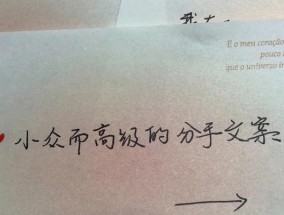 E o meu coração
pouco
que o universo
小众而高级的分手文案: